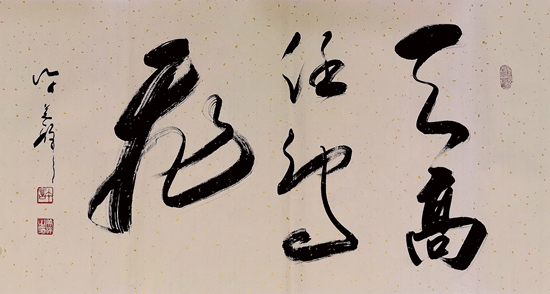 天高
任鳥
飛